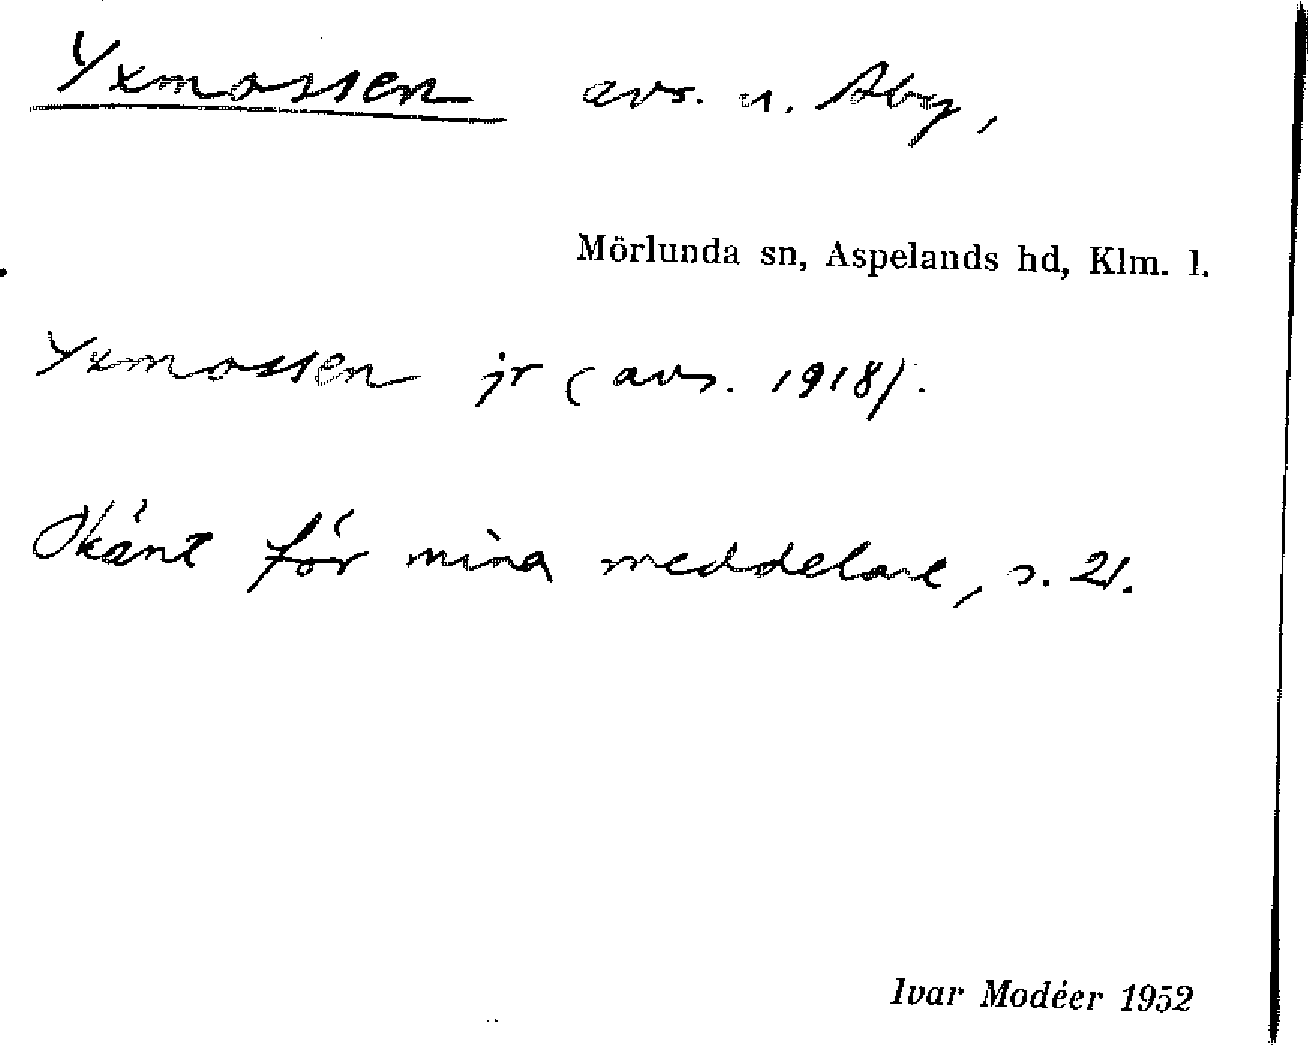 Yxmossen avs. u. Åby,
Mörlunda sn, Aspelands hd, Klm. l.
Yxmossen jr (avs. 1918).
Okänt för mina meddelare, s. 21.
Ivar Modéer 1952